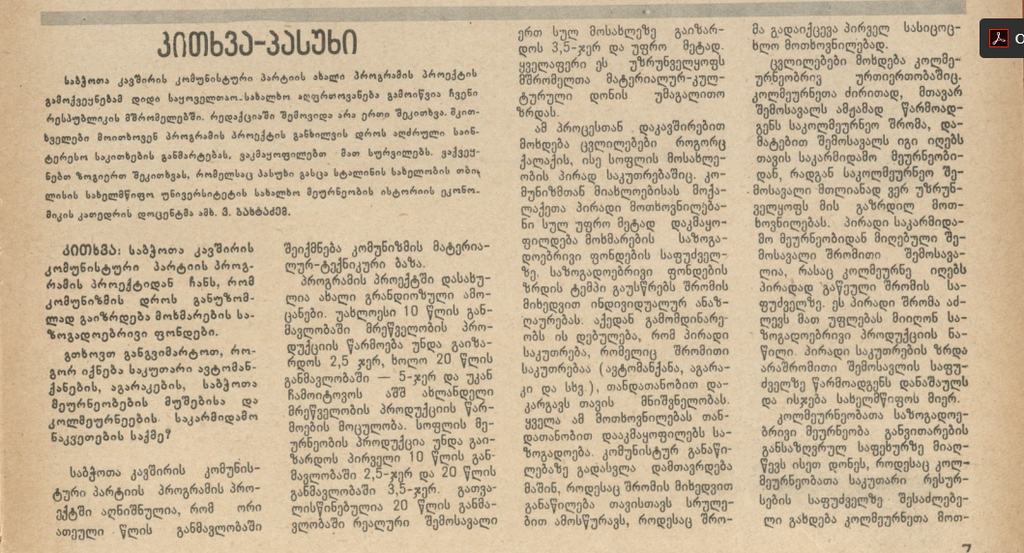 კითხვა-პასუხი
საბჭოთა კავშირის კომუნისტური პარტიის ახალი პროგრამის პროექტის
გამოქვეყნებამ დიდი საყოველთაო-სახალხო აღფრთოვანება გამოიწვია ჩვენი
რესპუბლიკის მშრომელებში. რედაქციაში შემოვიდა არა ერთი შეკითხვა. მკით-
ხველები მოითხოვენ პროგრამის პროექტის განხილვის დროს აღძრული საინ-
ტერესო საკითხების განმარტებას. ვაკმაყოფილებთ მათ სურვილებს. ვაქვეყ-
ნებთ ზოგიერთ შეკითხვას, რომელსაც პასუხი გასცა სტალინის სახელობის თბი-
ლისის სახელმწიფო უნივერსიტეტის სახალხო მეურნეობის ისტორიის ეკონო-
მიკის კათედრის დოცენტმა ამხ. ვ. ბახტაძემ.
კითხვა: საბჭოთა კავშირის
კომუნისტური პარტიის პროგ-
რამის პროექტიდან ჩანს, რომ
კომუნიზმის დროს განუზომ-
ლად გაიზრდება მოხმარების სა-
ზოგადოებრივი ფონდები.
გთხოვთ განგვიმარტოთ, რო-
გორ იქნება საკუთარი ავტომან-
ქანების, აგარაკების, საბჭოთა
მეურნეობების მუშებისა და
კოლმეურნეების საკარმიდამო
ნაკვეთების საქმე?
საბჭოთა კავშირის კომუნის-
ტური პარტიის პროგრამის პრო-
ექტში აღნიშნულია, რომ ორი
ათეული წლის განმავლობაში
შეიქმნება კომუნიზმის მატერია-
ლურ-ტექნიკური ბაზა.
პროგრამის პროექტში დასახუ-
ლია ახალი გრანდიოზული ამო-
ცანები. უახლოესი 10 წლის გან-
მავლობაში მრეწველობის პრო-
დუქციის წარმოება უნდა გაიზა-
რდოს 2,5 ჯერ, ხოლო 20 წლის
განმავლობაში — 5-ჯერ და უკან
ჩამოიტოვოს აშშ ახლანდელი
მრეწველობის პროდუქციის წარ-
მოების მოცულობა. სოფლის მე-
ურნეობის პროდუქცია უნდა გაი-
ზარდოს პირველი 10 წლის გან-
მავლობაში 2,5-ჯერ და 20 წლის
განმავლობაში 3,5-ჯერ. გათვა-
ლისწინებულია 20 წლის განმა-
ვლობაში რეალური შემოსავალი
ერთ სულ მოსახლეზე გაიზარ-
დოს 3,5-ჯერ და უფრო მეტად.
ყველაფერი ეს უზრუნველყოფს
მშრომელთა მატერიალურ-კულ-
ტურული დონის უმაგალითო
ზრდას.
ამ პროცესთან დაკავშირებით
მოხდება ცვლილებები როგორც
ქალაქის, ისე სოფლის მოსახლე-
ობის პირად საკუთრებაშიც. კო-
მუნიზმთან მიახლოებისას მოქა-
ლაქეთა პირადი მოთხოვნილება-
ნი სულ უფრო მეტად დაკმაყო-
ფილდება მოხმარების საზოგა-
დოებრივი ფონდების საფუძველ-
ზე. საზოგადოებრივი ფონდების
ზრდის ტემპი გაუსწრებს შრომის
მიხედვით ინდივიდუალურ ანაზ-
ღაურებას. აქედან გამომდინარე-
ობს ის დებულება, რომ პირადი
საკუთრება, რომელიც შრომითი
საკუთრებაა (ავტომანქანა, აგარა-
კი და სხვ.), თანდათანობით და-
კარგავს თავის მნიშვნელობას.
ყველა ამ მოთხოვნილებას თან-
დათანობით დააკმაყოფილებს სა-
ზოგადოება. კომუნისტურ განაწი-
ლებაზე გადასვლა დამთავრდება
მაშინ, როდესაც შრომის მიხედვით
განაწილება თავისთავს სრულე-
ბით ამოსწურავს, როდესაც შრო-
მა გადაიქცევა პირველ სასიცოც-
ხლო მოთხოვნილებად.
ცვლილებები მოხდება კოლმე-
ურნეობრივ ურთიერთობაშიც.
კოლმეურნეთა ძირითად, მთავარ
შემოსავალს ამჟამად წარმოად-
გენს საკოლმეურნეო შრომა, და-
მატებით შემოსავალს იგი იღებს
თავის საკარმიდამო მეურნეობი-
დან, რადგან საკოლმეურნეო შე-
მოსავალი მთლიანად ვერ უზრუნ-
ველყოფს მის გაზრდილ მოთ-
ხოვნილებას. პირადი საკარმიდა-
მო მეურნეობიდან მიღებული შე-
მოსავალი შრომითი შემოსავა-
ლია, რასაც კოლმეურნე იღებს
პირადად გაწეული შრომის სა-
ფუძველზე. ეს პირადი შრომა აძ-
ლევს მათ უფლებას მიიღონ სა-
ზოგადოებრივი პროდუქციის ნა-
წილი. პირადი საკუთრების ზრდა
არაშრომითი შემოსავლის საფუ-
ძველზე წარმოადგენს დანაშაულს
და ისჯება სახელმწიფოს მიერ.
კოლმეურნეობათა საზოგადო-
ებრივი მეურნეობა განვითარების
განსაზღვრულ საფეხურზე მიაღ-
წევს ისეთ დონეს, როდესაც კოლ-
მეურნეობათა საკუთარი რესურ-
სების საფუძველზე შესაძლებე-
ლი გახდება კოლმეურნეთა მოთ-
7